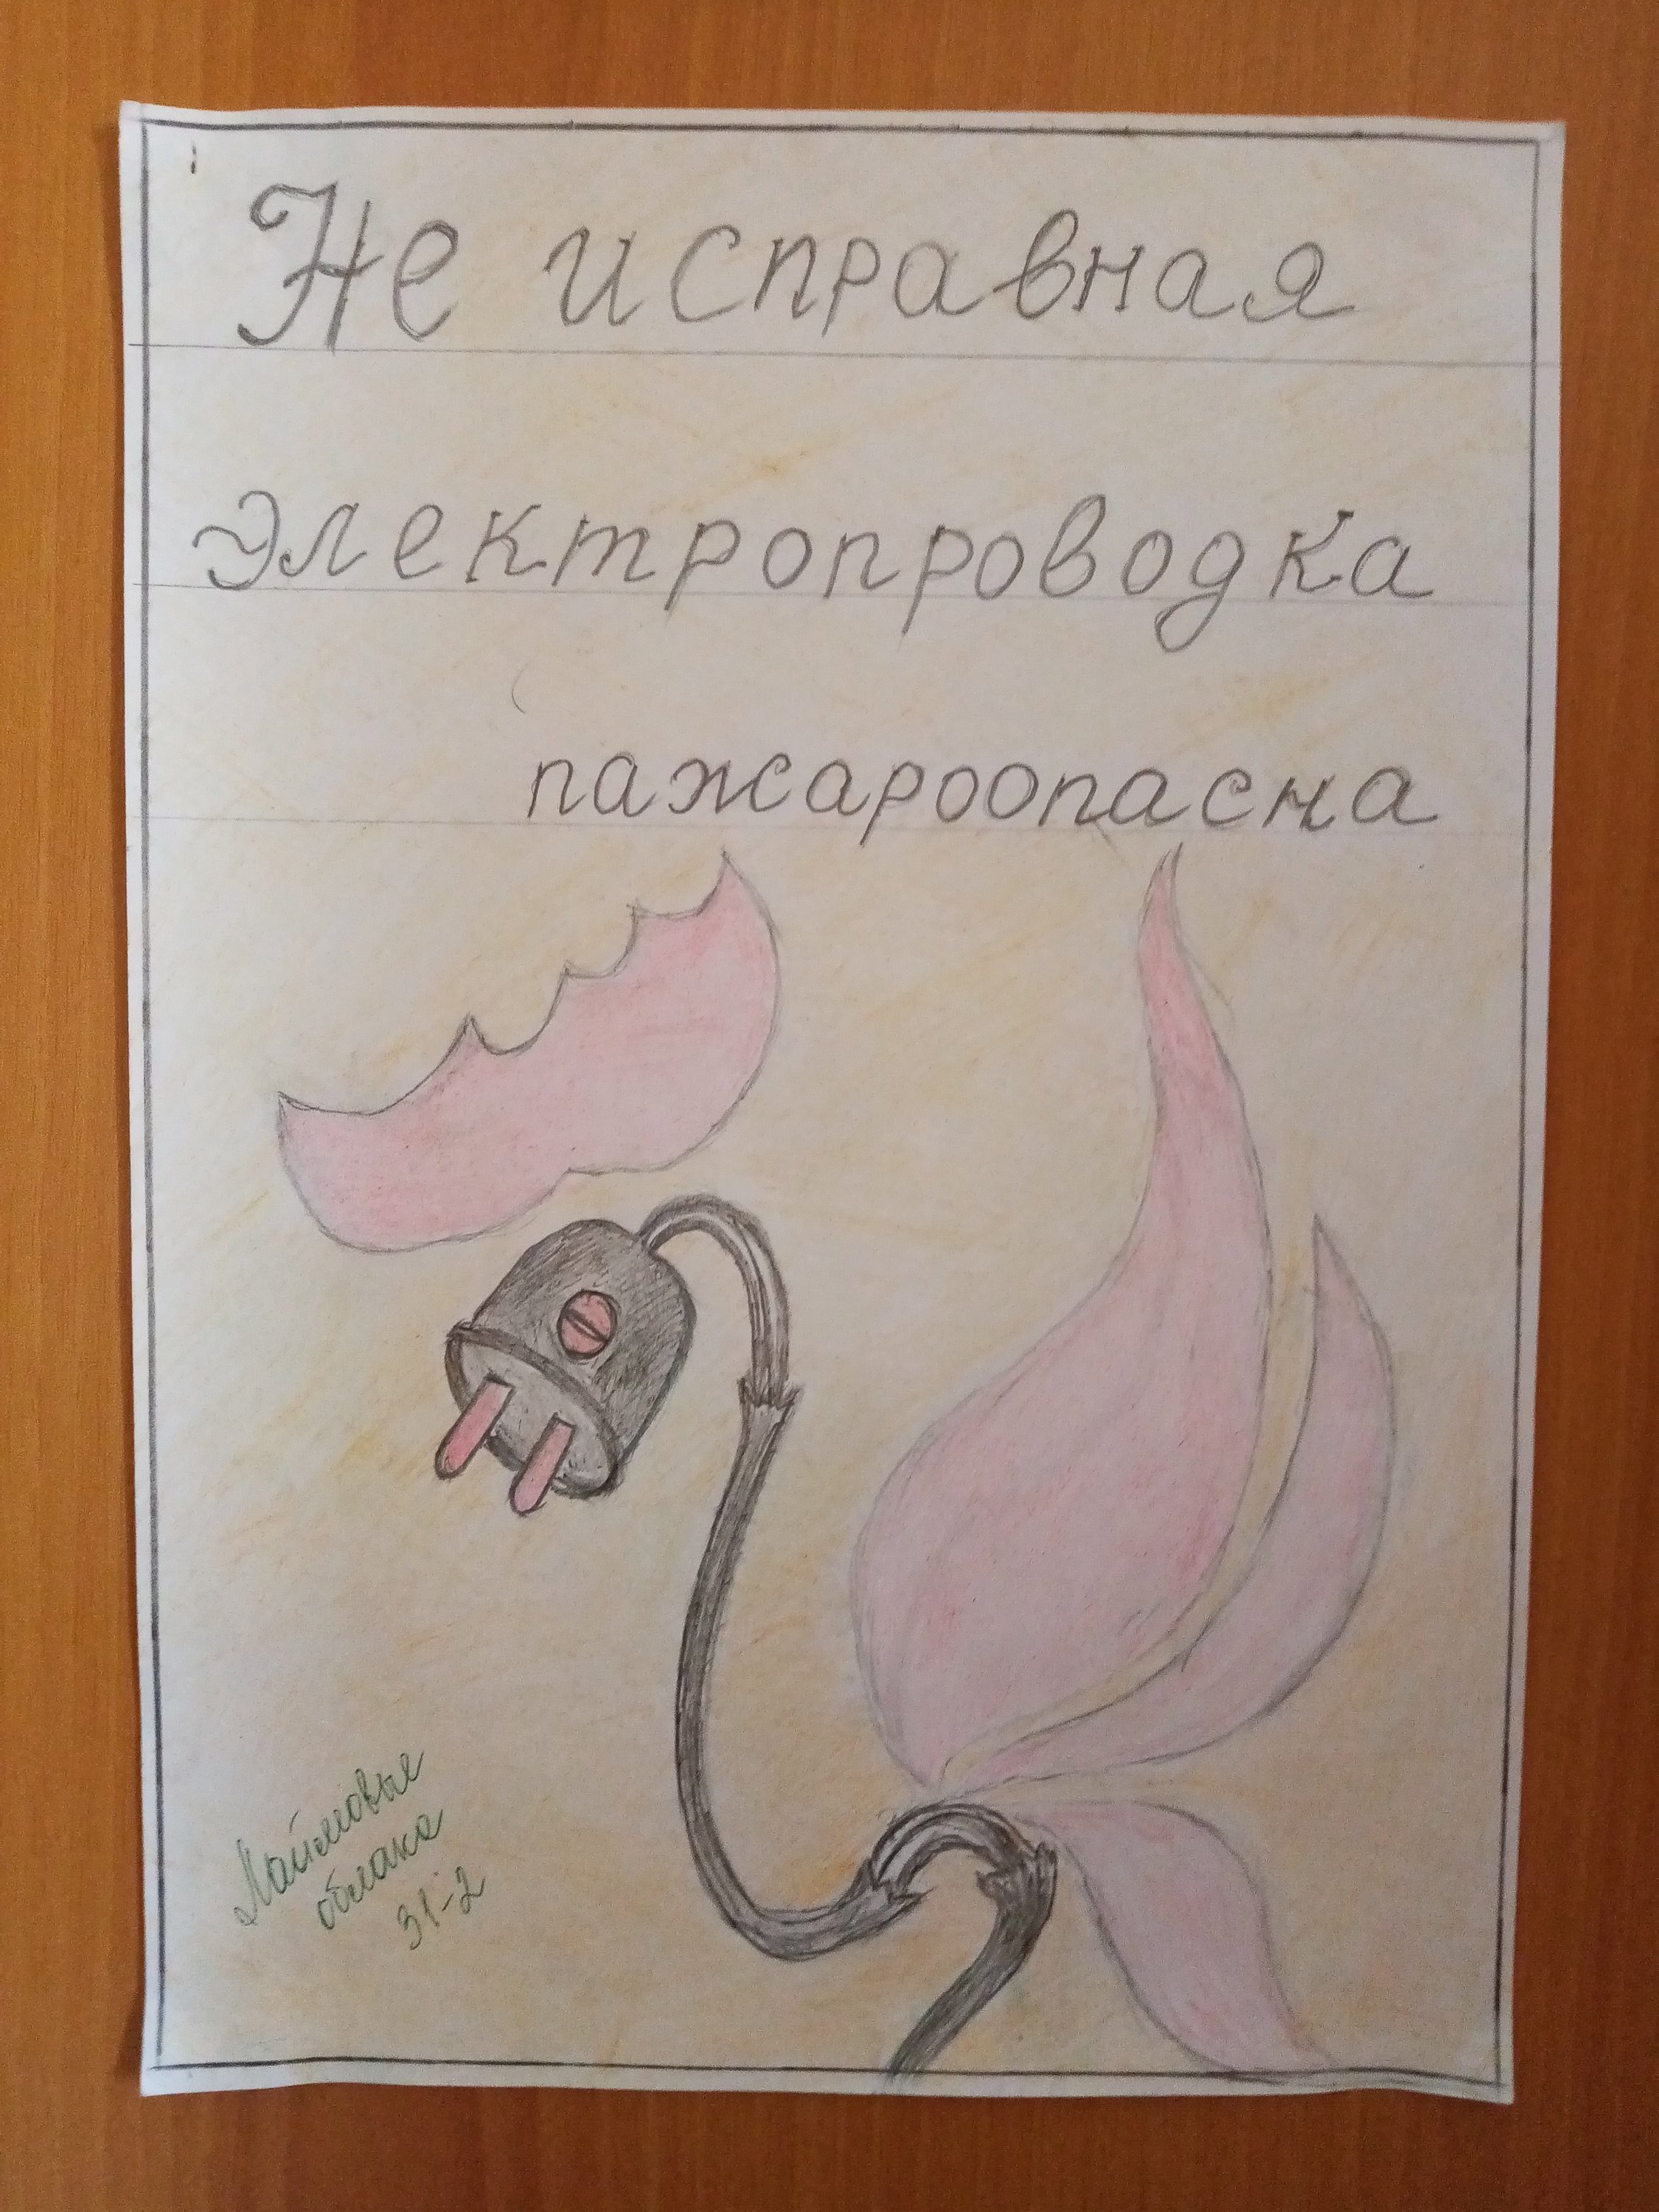 Не исправная
электропроводка
пажароопасна
облака
31-2